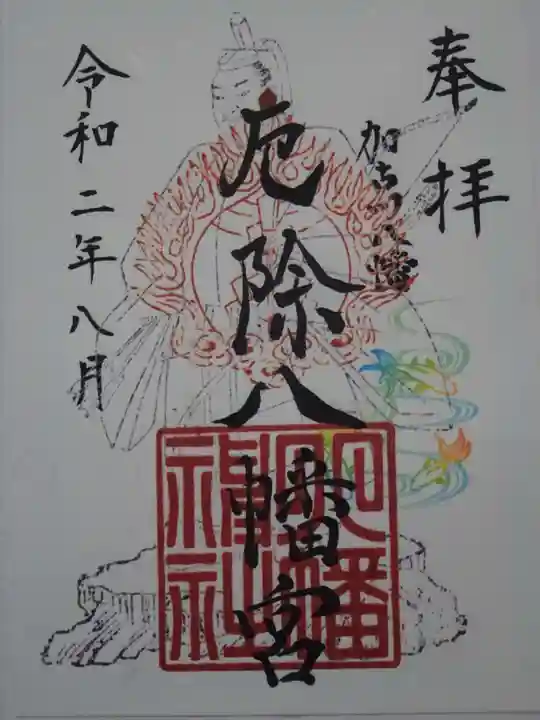 奉拝
加古川八幡
厄除八幡宮
八幡神社
令和二年八月